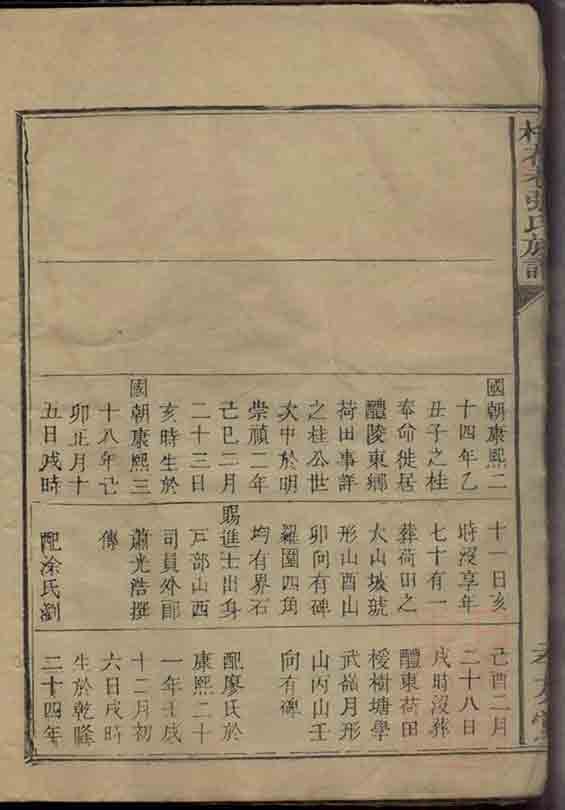 張氏族
國朝康熙二
十四年乙
丑子之桂
奉命徙居
醴陵東鄉
荷田事詳
之桂公世
次中於明
崇禎二年
己巳二月
二十三日
亥時生於
國朝康熙三
十八年己
卯正月十
五日戌時
十一日亥
時沒享年
七十有一
葬荷田之
大山坡琥
形山酉山
卯向有碑
羅圍四角
均有界石
賜進士出身
戶部山西
司員外郎
蕭光浩撰
傳
配涂氏劉
己酉二月
二十八日
戌時沒葬
醴東荷田
椶樹塘學
武嶺月形
山丙山壬
向有碑
配廖氏於
康熙二十
一年壬戌
十二月初
六日戌時
生於乾隆
二十四年